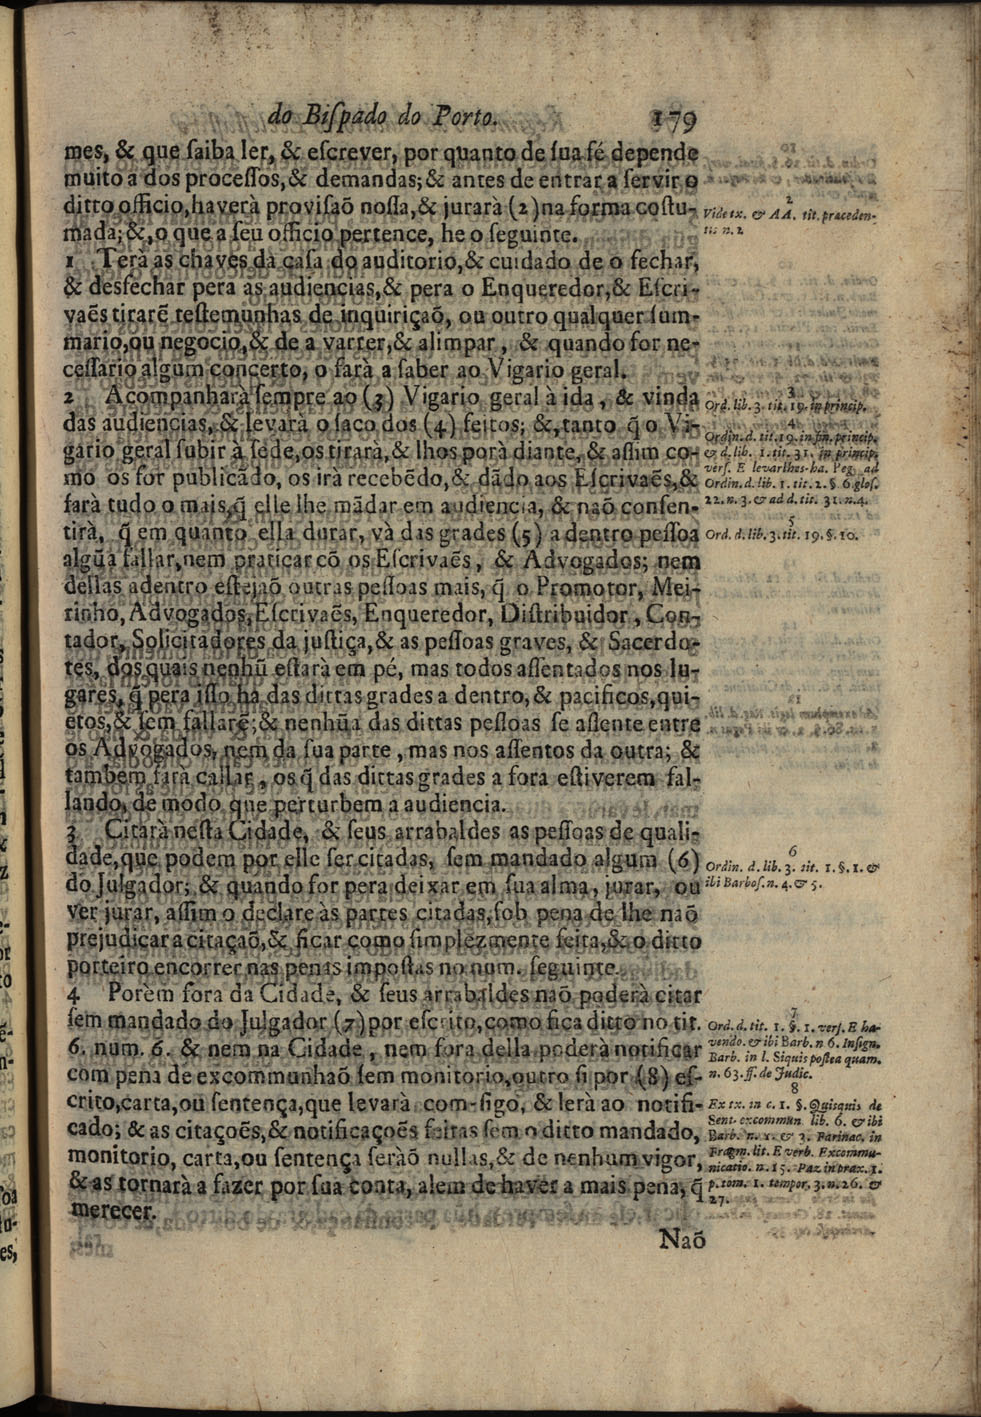 do Biſpado do Porto. 179
mes, & que ſaiba ler, & eſcrever, por quanto de ſua fé depende
muito a dos proceſſos, & demandas; & antes de entrar a ſervir o
ditto officio, haverà proviſaõ noſſa, & jurarà (2) na forma coſtu-
mada; &, o que a ſeu officio pertence, he o ſeguinte.
1 Terà as chaves da caſa do auditorio, & cuidado de o fechar,
& desfechar pera as audiencias, & pera o Enqueredor, & Eſcri-
vaẽs tirarẽ teſtemunhas de inquiriçaõ, ou outro qualquer ſum-
mario, ou negocio, & de a varrer, & alimpar, & quando for ne-
ceſſario algum concerto, o farà a ſaber ao Vigario geral.
2 Acompanharà ſempre ao (3) Vigario geral à ida, & vinda
das audiencias, & levarà o ſaco dos (4) feitos; &, tanto q̃ o Vi-
gario geral ſubir à ſede, os tirarà, & lhos porà diante, & aſſim co-
mo os for publicãdo, os irà recebẽdo, & dãdo aos Eſcrivaẽs, &
farà tudo o mais, q̃ elle lhe mãdar em audiencia, & naõ conſen-
tirà, q̃ em quanto ella durar, và das grades (5) a dentro peſſoa
algũa fallar, nem praticar cõ os Eſcrivaẽs, & Advogados; nem
dellas adentro eſtejaõ outras peſſoas mais, q̃ o Promotor, Mei-
rinho, Advogados, Eſcrivaẽs, Enqueredor, Diſtribuidor, Con-
tador, Solicitadores da juſtiça, & as peſſoas graves, & Sacerdo-
tes, dos quais nenhũ eſtarà em pé, mas todos aſſentados nos lu-
gares, q̃ pera iſſo ha das dittas grades a dentro, & pacificos, qui-
etos, & ſem fallarẽ; & nenhũa das dittas peſſoas ſe aſſente entre
os Advogados, nem da ſua parte, mas nos aſſentos da outra; &
tambem farà callar, os q̃ das dittas grades a fora eſtiverem fal-
lando, de modo que perturbem a audiencia.
3 Citarà neſta Cidade, & ſeus arrabaldes as peſſoas de quali-
dade, que podem por elle ſer citadas, ſem mandado algum (6)
do Julgador; & quando for pera deixar em ſua alma, jurar, ou
ver jurar, aſſim o declare às partes citadas, ſob pena de lhe naõ
prejudicar a citaçaõ, & ficar como ſimplezmente feita, & o ditto
porteiro encorrer nas penas impoſtas no num. ſeguinte.
4 Porèm fora da Cidade, & ſeus arrabaldes naõ poderà citar
ſem mandado do Julgador (7) por eſcrito, como fica ditto no tit.
6. num. 6. & nem na Cidade, nem fora della poderà notificar
com pena de excommunhaõ ſem monitorio, outro ſi por (8) eſ-
crito, carta, ou ſentença, que levarà com-ſigo, & lerà ao notifi-
cado; & as citaçoẽs, & notificaçoẽs feitas ſem o ditto mandado,
monitorio, carta, ou ſentença ſeràõ nullas, & de nenhum vigor,
& as tornarà a fazer por ſua conta, alem de haver a mais pena, q̃
merecer.
Naõ
2
Vide tx. & AA. tit. præceden-
tis n. 2
3
Ord. lib. 3. tit. 19. in princip.
4
Ordin. d. tit. 19. in fin. princip.
& d. lib. 1. tit. 31. in princip.
verſ. E levarlhes-ha. Peg. ad
Ordin. d. lib. 1. tit. 2. §. 6 gloſ.
22. n. 3. & ad d. tit. 31. n. 4.
5
Ord. d. lib. 3. tit. 19. §. 10.
6
Ordin. d. lib. 3. tit. 1. §. 1. &
ibi Barboſ. n. 4. & 5.
7
Ord. d. tit. 1. §. 1. verſ. E ha-
vendo. & ibi Barb. n 6. Inſign.
Barb. in l. Siquis poſtea quam.
n. 63. ff. de Judic.
8
Ex tx. in c. 1. §. Quisquis de
Sent. excommun lib. 6. & ibi
Barb. n. 1. & 3. Farinac. in
Fragm. lit. E verb. Excommu-
nicatio. n. 15. Paz in prax. 1.
p. tom. 1. tempor. 3. n. 26. &
27.